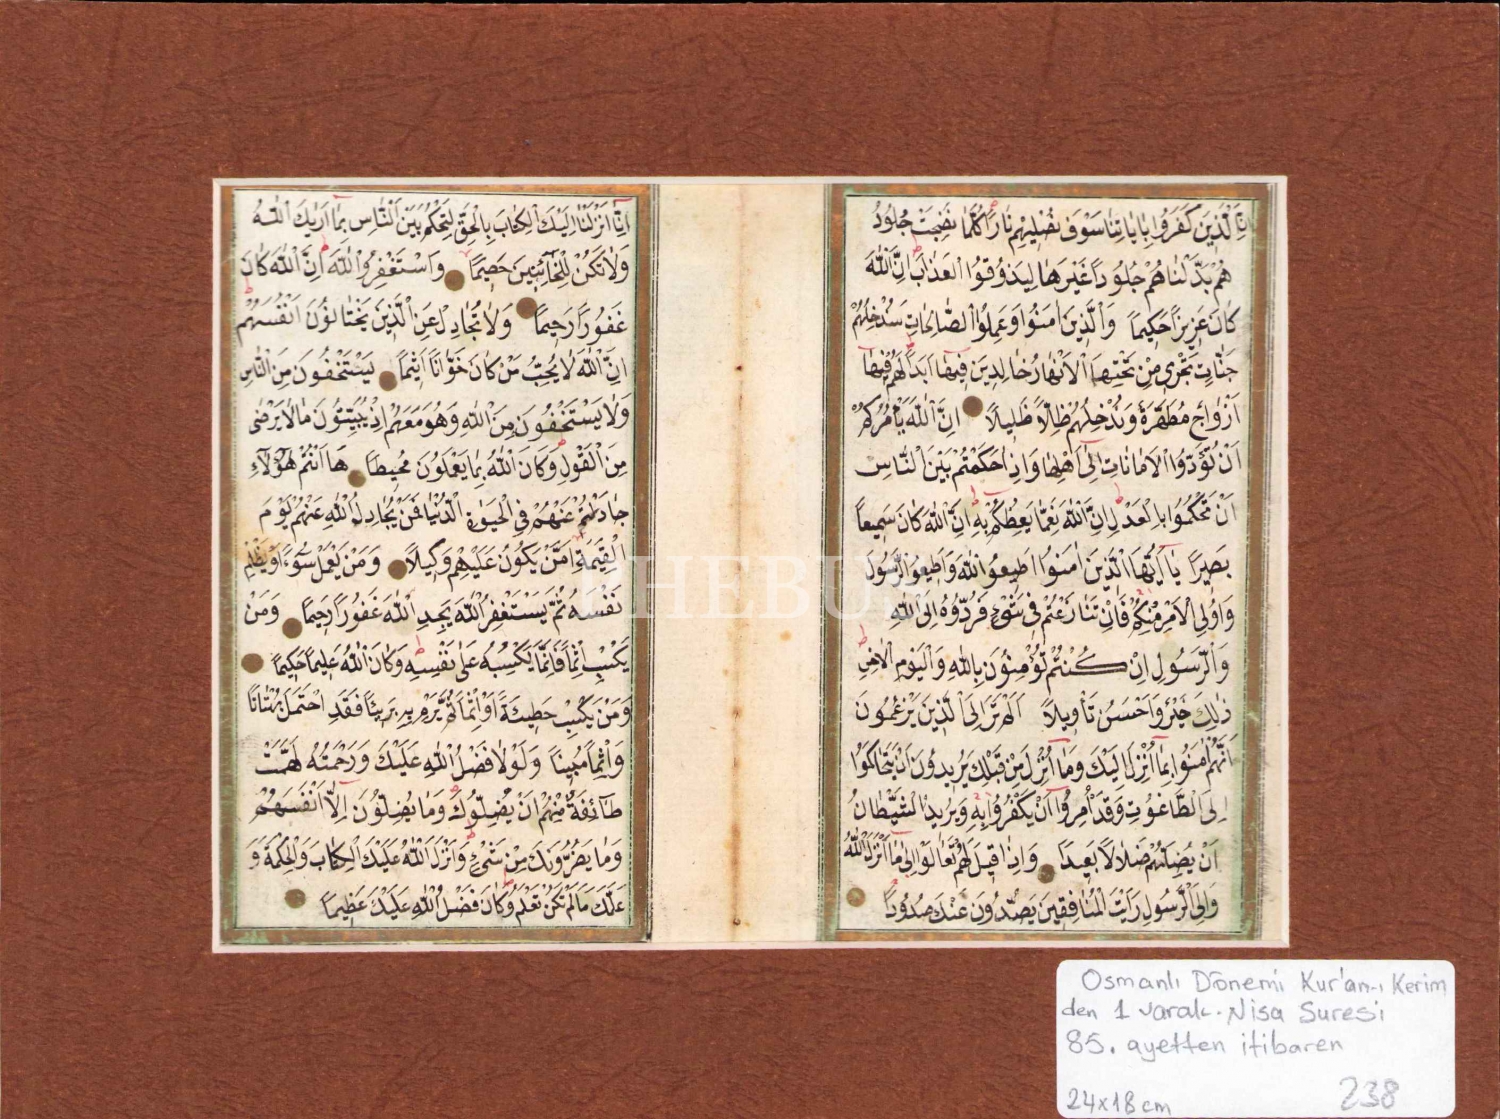 اِنَّ الَّذينَ كَفَرُوا بِاٰيَاتِنَا سَوْفَ نُصْليهِمْ نَارًا كُلَّمَا نَضِجَتْ جُلُودُ
هُمْ بَدَّلْنَاهُمْ جُلُودًا غَيْرَهَا لِيَذُوقُوا الْعَذَابَ اِنَّ اللّٰهَ
كَانَ عَزيزًا حَكيمًا وَالَّذينَ اٰمَنُوا وَعَمِلُوا الصَّالِحَاتِ سَنُدْخِلُهُمْ
جَنَّاتٍ تَجْرى مِنْ تَحْتِهَا الْاَنْهَارُ خَالِدينَ فيهَا اَبَدًا لَهُمْ فيهَا
اَزْوَاجٌ مُطَهَّرَةٌ وَنُدْخِلُهُمْ ظِلًّا ظَليلًا اِنَّ اللّٰهَ يَاْمُرُكُمْ
اَنْ تُؤَدُّوا الْاَمَانَاتِ اِلٰى اَهْلِهَا وَاِذَا حَكَمْتُمْ بَيْنَ النَّاسِ
اَنْ تَحْكُمُوا بِالْعَدْلِ اِنَّ اللّٰهَ نِعِمَّا يَعِظُكُمْ بِهِ اِنَّ اللّٰهَ كَانَ سَميعًا
بَصيرًا يَا اَيُّهَا الَّذينَ اٰمَنُوا اَطيعُوا اللّٰهَ وَاَطيعُوا الرَّسُولَ
وَاُولِى الْاَمْرِ مِنْكُمْ فَاِنْ تَنَازَعْتُمْ فى شَىْءٍ فَرُدُّوهُ اِلَى اللّٰهِ
وَالرَّسُولِ اِنْ كُنْتُمْ تُؤْمِنُونَ بِاللّٰهِ وَالْيَوْمِ الْاٰخِرِ
ذٰلِكَ خَيْرٌ وَاَحْسَنُ تَاْويلًا اَلَمْ تَرَ اِلَى الَّذينَ يَزْعُمُونَ
اَنَّهُمْ اٰمَنُوا بِمَا اُنْزِلَ اِلَيْكَ وَمَا اُنْزِلَ مِنْ قَبْلِكَ يُريدُونَ اَنْ يَتَحَاكَمُوا
اِلَى الطَّاغُوتِ وَقَدْ اُمِرُوا اَنْ يَكْفُرُوا بِهِ وَيُريدُ الشَّيْطَانُ
اَنْ يُضِلَّهُمْ ضَلَالًا بَعيدًا وَاِذَا قيلَ لَهُمْ تَعَالَوْا اِلٰى مَا اَنْزَلَ اللّٰهُ
وَاِلَى الرَّسُولِ رَاَيْتَ الْمُنَافِقينَ يَصُدُّونَ عَنْكَ صُدُودًا
اِنَّا اَنْزَلْنَا اِلَيْكَ الْكِتَابَ بِالْحَقِّ لِتَحْكُمَ بَيْنَ النَّاسِ بِمَا اَرٰيكَ اللّٰهُ
وَلَا تَكُنْ لِلْخَائِنينَ خَصيمًا وَاسْتَغْفِرُوا اللّٰهَ اِنَّ اللّٰهَ كَانَ
غَفُورًا رَحيمًا وَلَا تُجَادِلْ عَنِ الَّذينَ يَخْتَانُونَ اَنْفُسَهُمْ
اِنَّ اللّٰهَ لَا يُحِبُّ مَنْ كَانَ خَوَّانًا اَثيمًا يَسْتَخْفُونَ مِنَ النَّاسِ
وَلَا يَسْتَخْفُونَ مِنَ اللّٰهِ وَهُوَ مَعَهُمْ اِذْ يُبَيِّتُونَ مَا لَا يَرْضٰى
مِنَ الْقَوْلِ وَكَانَ اللّٰهُ بِمَا يَعْلَمُونَ مُحيطًا هَا اَنْتُمْ هٰؤُلَاءِ
جَادَلْتُمْ عَنْهُمْ فِى الْحَيٰوةِ الدُّنْيَا فَمَنْ يُجَادِلُ اللّٰهَ عَنْهُمْ يَوْمَ
الْقِيٰمَةِ اَمَّنْ يَكُونُ عَلَيْهِمْ وَكيلًا وَمَنْ يَعْمَلْ سُوءًا اَوْ يَظْلِمْ
نَفْسَهُ ثُمَّ يَسْتَغْفِرِ اللّٰهَ يَجِدِ اللّٰهَ غَفُورًا رَحيمًا وَمَنْ
يَكْسِبْ اِثْمًا فَاِنَّمَا يَكْسِبُهُ عَلٰى نَفْسِهِ وَكَانَ اللّٰهُ عَليمًا حَكيمًا
وَمَنْ يَكْسِبْ خَطيئَةً اَوْ اِثْمًا ثُمَّ يَرْمِ بِهِ بَريئًا فَقَدِ احْتَمَلَ بُهْتَانًا
وَاِثْمًا مُبينًا وَلَوْلَا فَضْلُ اللّٰهِ عَلَيْكَ وَرَحْمَتُهُ لَهَمَّتْ
طَائِفَةٌ مِنْهُمْ اَنْ يُضِلُّوكَ وَمَا يُضِلُّونَ اِلَّا اَنْفُسَهُمْ
وَمَا يَضُرُّونَكَ مِنْ شَىْءٍ وَاَنْزَلَ اللّٰهُ عَلَيْكَ الْكِتَابَ وَالْحِكْمَةَ وَ
عَلَّمَكَ مَا لَمْ تَكُنْ تَعْلَمُ وَكَانَ فَضْلُ اللّٰهِ عَلَيْكَ عَظيمًا
Osmanlı Dönemi Kur'an-ı Kerim
den 1 varak. Nisa Suresi
85. ayetten itibaren
24x18 cm 238